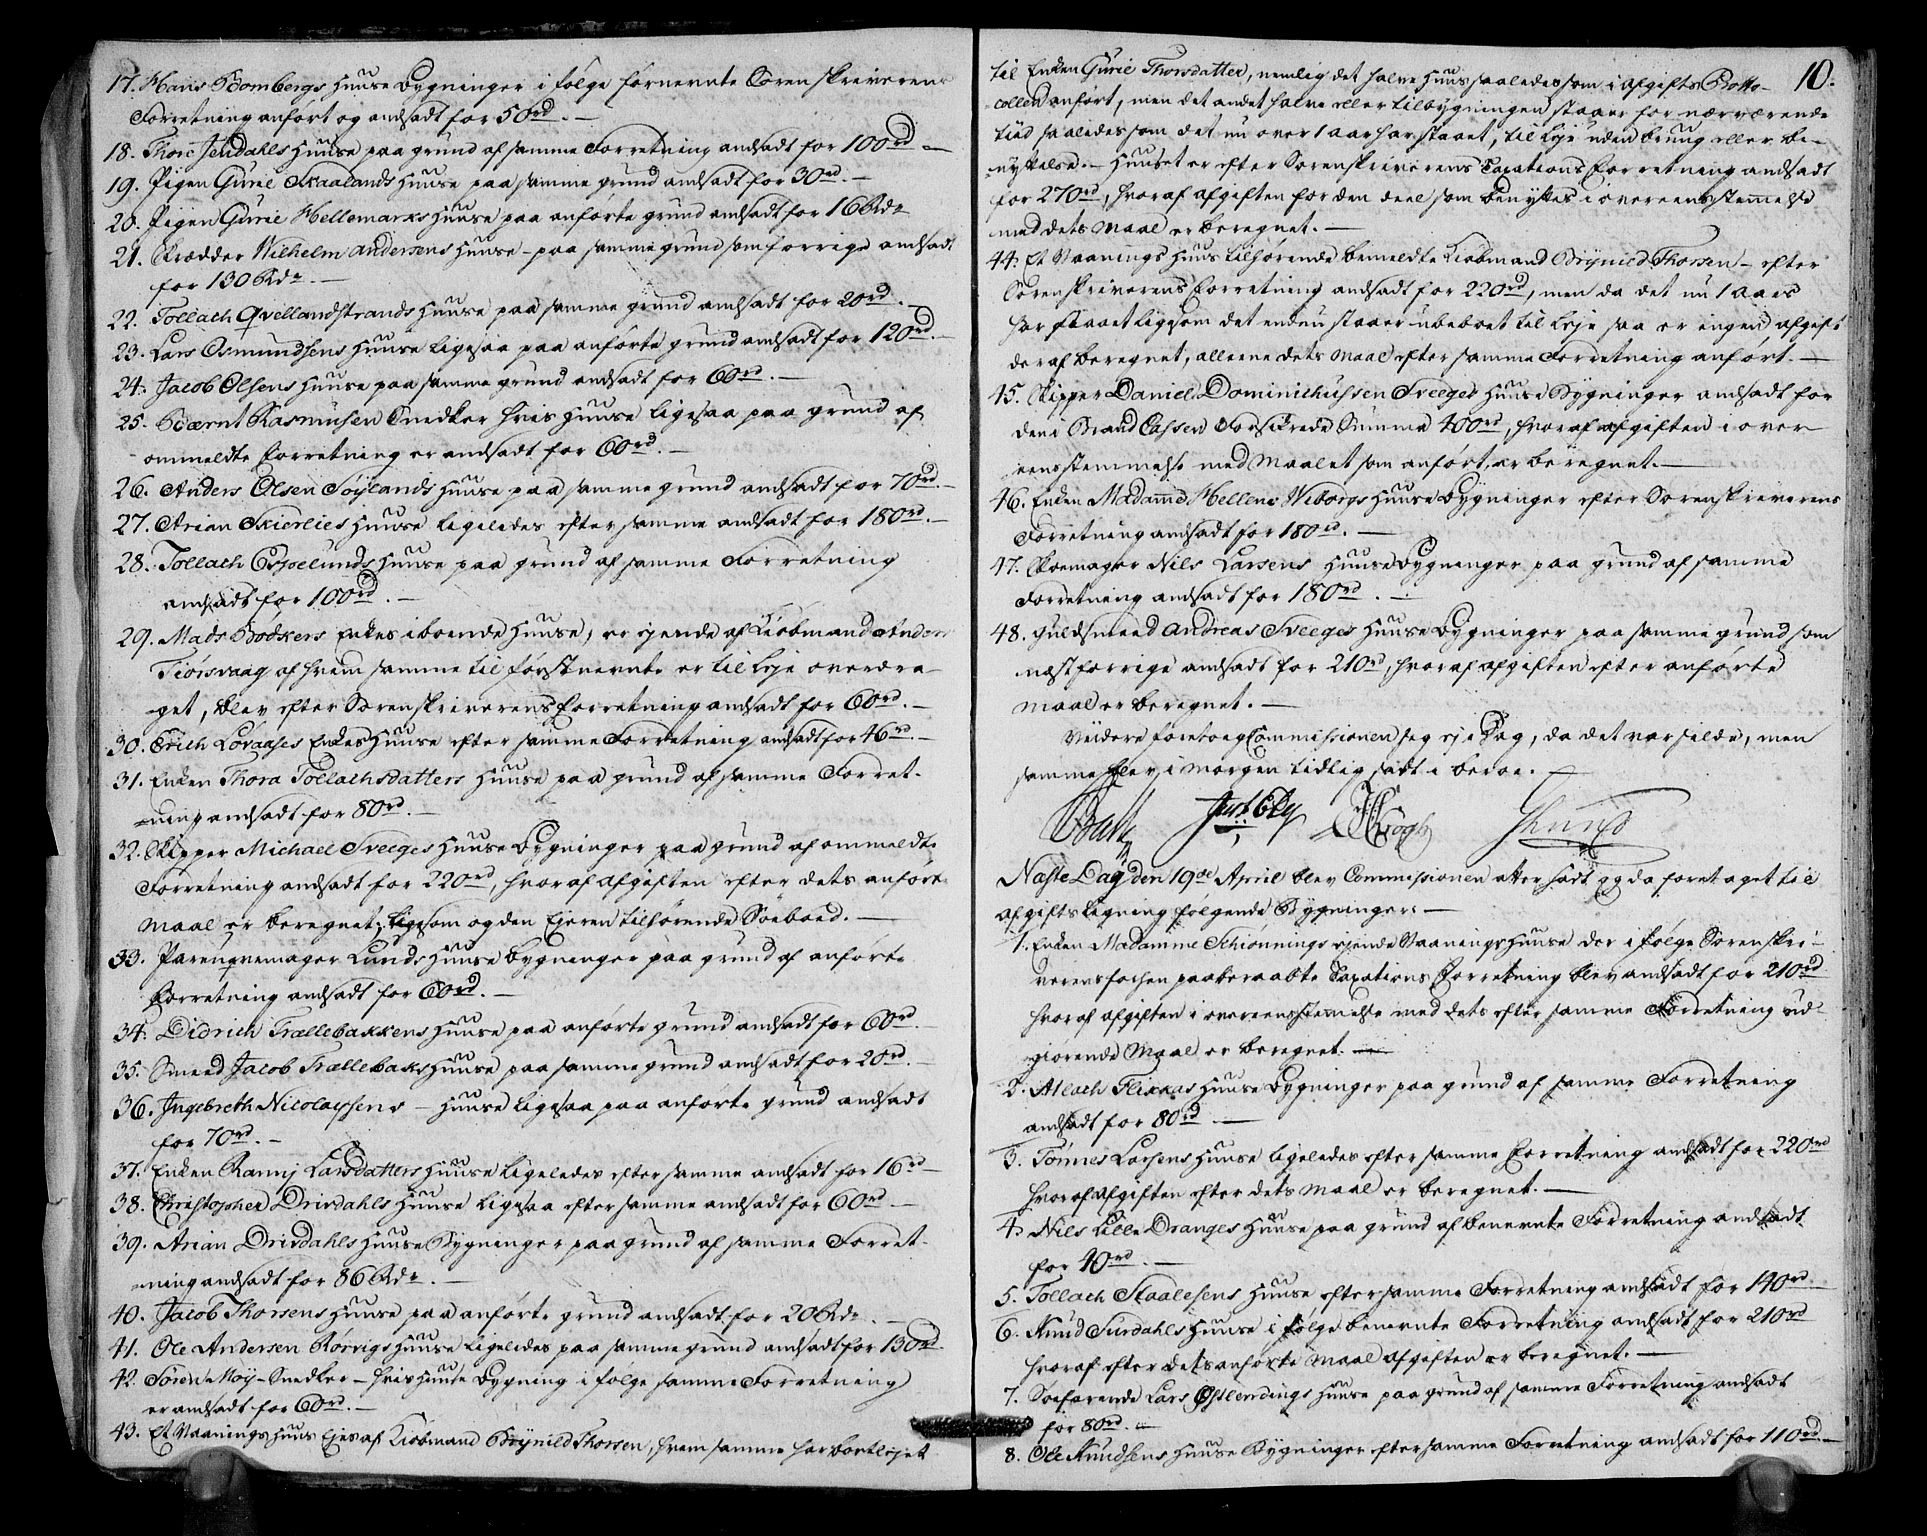 17. Hans Bombergs Huuse Bygninger i følge fornevnte Sorenskriverens
Forretning anført og andsadt for 50rd. –
18. Thore Jendahls Huuse paa grund af samme Forretning andsadt for 100rd –
19. Pigen Gurie Skaalands Huuse paa samme grund andsadt for 30rd. –
20. Pigen Gurie Hellemarks Huuse paa anførte grund andsadt for 16 Rdr
21. Skrædder Wilhelm Andersens Huuse – paa samme grund som forrige andsadt
for 130 Rdr. –
22. Tollach Qvellandstrands Huuse paa samme grund andsadt for 20rd. –
23. Lars Osmundsens Huuse ligesaa paa anførte grund andsadt for 120rd. –
24. Jacob Olsens Huuse paa samme grund andsadt for 60rd. –
25. Bærnt Rasmusen Snedker hvis Huuse ligesaa paa grund af
ommeldte Forretning er andsadt for 60rd. –
26. Anders Olsen Søylands Huuse paa samme grund andsadt for 70rd. –
27. Arian Skierlies Huuse ligeledes efter samme andsadt for 180rd. –
28. Tollach Espelunds Huuse paa grund af samme Forretning
andsadt for 100rd. –
29. Mads Bødkers Enkes iboende Huuse, er ejende af Kiøbmand Anders
Tiørsvaag af hvem samme til førstnevnte er til Leje overdra-
get, blev efter Sorenskriverens Forretning andsadt for 60rd. –
30. Erich Lovaases Enkes Huuse efter samme Forretning andsadt for 46rd. –
31. Enken Thora Tollachsdatters Huuse paa grund af samme Forret-
ning andsadt for 80rd. –
32. Skipper Michael Sveeges Huuse Bygninger paa grund af ommeldte
Forretning andsadt for 220rd, hvoraf afgiften efter dets anførte
Maal er beregnet, ligesom og den Ejeren tilhørende Søeboed. –
33. Parenqvemager Lunds Huuse bygninger paa grund af anførte
Forretning andsadt for 60rd. –
34. Didrich Trællebakkens Huuse paa anførte grund andsadt for 60rd. –
35. Smeed Jacob Trællebaks Huuse paa samme grund andsadt for 20rd. –
36. Ingebreth Nicolaysens – Huuse ligesaa paa anførte grund andsadt
for 70rd. –
37. Enken Ranni Larsdatters Huuse ligeledes efter samme andsadt for 16rd –
38. Christopher Drivdahls Huuse ligesaa efter samme andsadt for 60rd –
39. Arian Drivdahls Huuse Bygninger paa grund af samme Forret-
ning andsadt for 86 Rdr. –
40. Jacob Thorsens Huuse paa anførte grund andsadt for 20 Rdr. –
41. Ole Andersen Rørvigs Huuse ligeledes paa samme grund andsadt for 130rd
42. Søren Møy – Snedker – hvis Huuse Bygning i følge samme Forretning
er andsadt for 60rd. –
43. Et Vaanings Huus Ejes af Kiøbmand Brynild Thorsen, hvem samme har bortlejet
10.
til Enken Gurie Thorsdatter, nemlig det halve Huus saaledes som i Afgifts Protto-
collen anført, men det andet halve eller tilbygningen staaer for nærværende
tiid saaledes som det nu over 1 aar har staaet, til Leje uden brug eller be-
nyttelse. – Huuset er efter Sorenskriverens Taxations Forretning andsadt
for 270rd, hvoraf afgiften for den deel som benyttes i overeensstemmelse
med dets Maal er beregnet. –
44. Et Vaanings Huus tilhørende bemeldte Kiøbmand Brynild Thorsen – efter
Sorenskriverens Forretning andsadt for 220rd, men da det nu 1 Aars
har staaet ligesom det endnu staaer ubeboet til Leje saa er ingen afgift
deraf beregnet, alleene dets Maal efter samme Forretning anført. –
45. Skipper Daniel Dominichussen Sveeges Huuse Bygninger andsadt for
den i Brand Cassen Forsikrede Summa 400rd, hvoraf afgiften i over
eensstemmelse med Maalet som anført, er beregnet. –
46. Enken Madamme Hellene Wiborgs Huuse Bygninger efter Sorenskriverens
Forretning andsadt for 180rd. –
47. Skoemager Nils Larsens Huuse Bygninger paa grund af samme
Forretning andsadt for 180rd. –
48. Guldsmeed Andreas Sveeges Huuse Bygninger paa samme grund som
næst forrige andsadt for 210rd, hvoraf afgiften efter anførte
Maal er beregnet. –
Viidere foretoeg Commissionen seg ej i Dag, da det var silde, men
samme blev i morgen tidlig sadt i beroe. –
HKrogh Lund
Næste Dag den 19de April blev Commissionen atter sadt og da foretaget til
afgifts Ligning følgende Bygninger: –
1. Enken Madamme Schiønnings ejende Vaanings Huuse der i følge Sorenskri-
verens forhen paaberaabte Taxations Forretning blev andsadt for 210rd
hvoraf afgiften i overeensstemelse med dets efter samme Forretning ud-
giørende Maal er beregnet. –
2. Atlach Fliskas Huuse Bygninger paa grund af samme Forretning
andsadt for 80rd. –
3. Tønnes Larsens Huuse ligeledes efter samme Forretning andsadt for 220rd
hvoraf afgiften efter dets Maal er beregnet. –
4. Nils Lille Pranges Huuse paa grund af benevnte Forretning andsadt
for 40rd. –
5. Tollach Staalesens Huuse efter samme Forretning andsadt for 140rd –
6. Knud Surdahls Huuse i følge benevnte Forretning andsadt for 210rd
hvoraf efter dets anførte Maal afgiften er beregnet. –
7. Søefarende Lars Østlendings Huuse paa grund af samme Forretning andsadt
for 80rd. –
8. Ole Knudsens Huuse Bygninger efter samme Forretning andsadt for 110rd. –